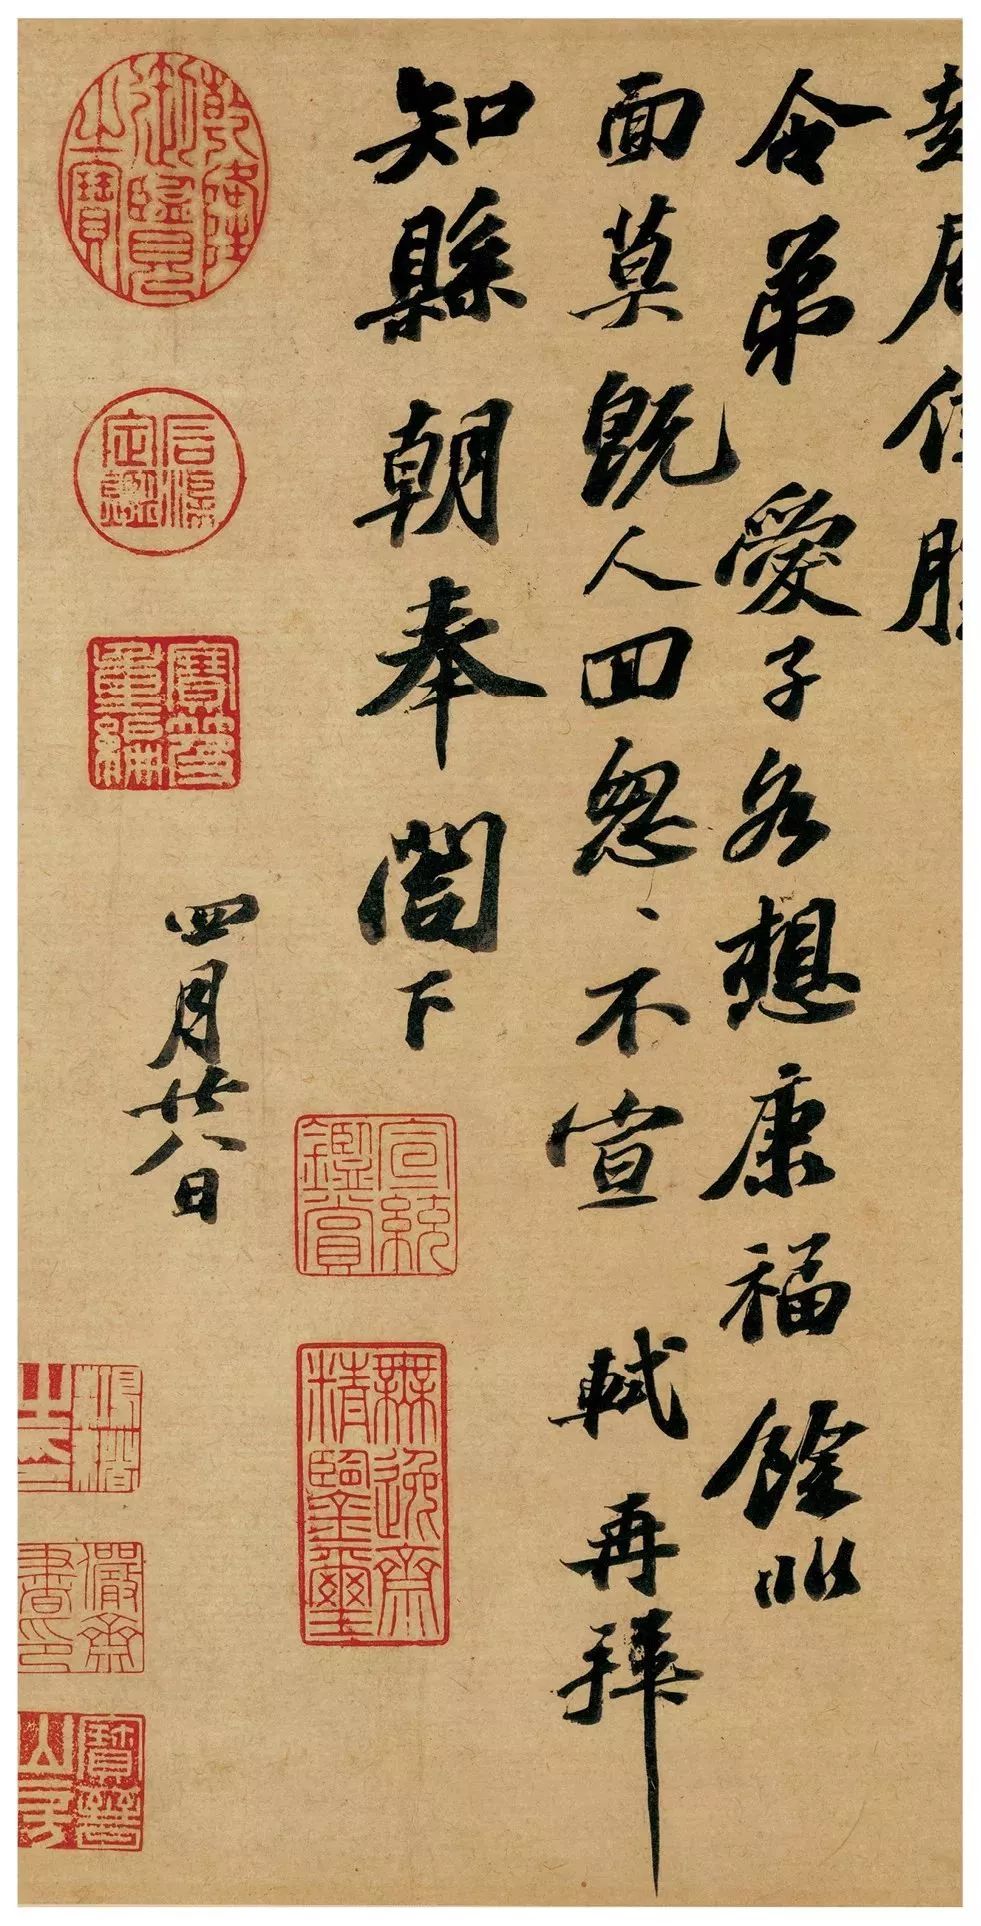 起居佳勝
令弟 愛子各想康福 餘非
面莫既人回怱〻不宣 軾再拜
知縣朝奉 閤下
四月廿八日
乾隆御覽之寶
石渠定鑑
寶笈重編
宣統鑑賞
無逸齋精鑒璽